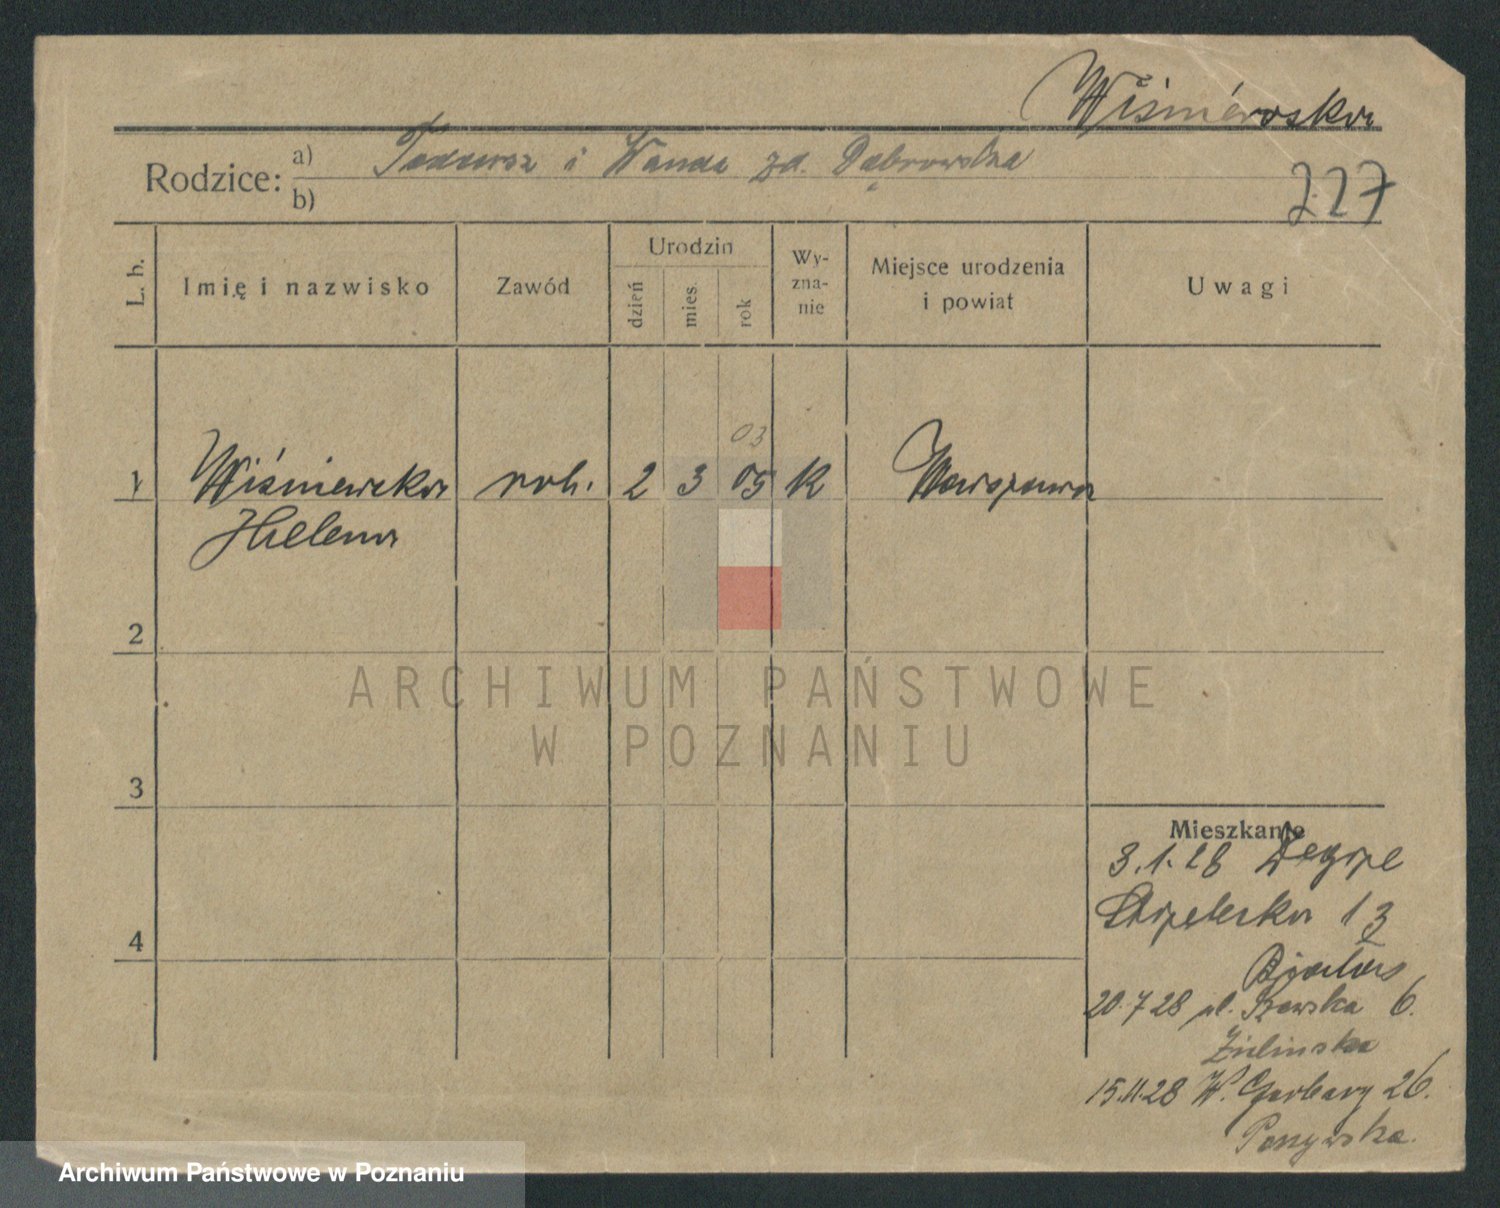 Wiśniewska
Rodzice: a) Tadeusz i Wanda zd. Dąbrowska
b)
227
L. b.
Imię i nazwisko
Zawód
Urodzin
dzień
mies.
rok
Wy-
zna-
nie
Miejsce urodzenia
i powiat
Uwagi
03
1 Wiśniewska rob. 2 3 05 K Warszawa
Helena
2
ARCHIWUM PAŃSTWOWE
W POZNANIU
3
Mieszkanie
3.1.28
13
4
20.7.28 ul. 6.
Zielinska
15.11.28 W. Garbary 26.
Archiwum Państwowe w Poznaniu